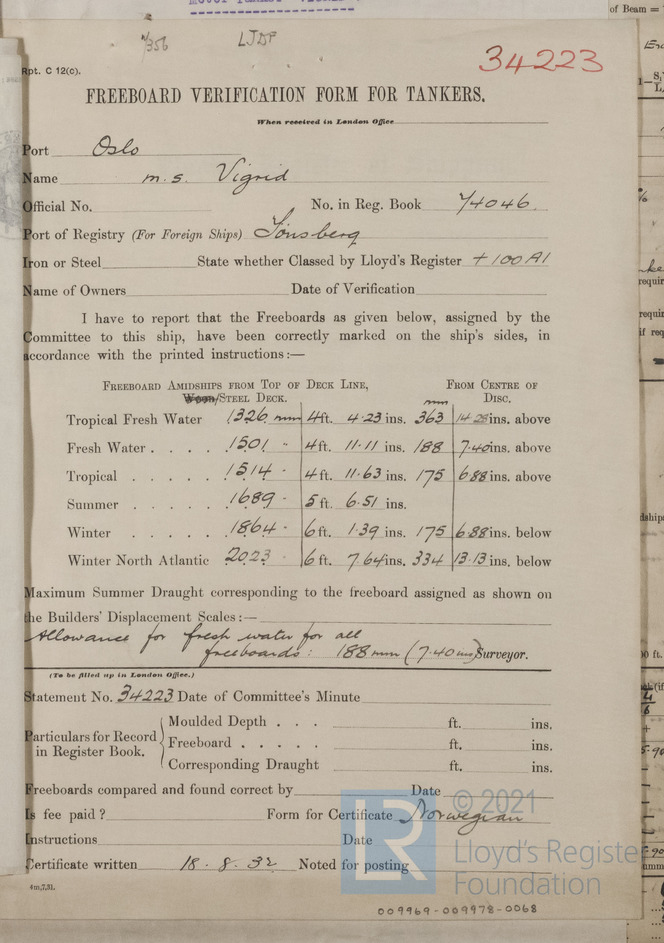 of Beam =
4/356
LJDP
34223
Rpt. C 12(c).
FREEBOARD VERIFICATION FORM FOR TANKERS.
When received in London Office
Port Oslo
Name m.s. Vigrid
Official No. No. in Reg. Book 74046.
Port of Registry (For Foreign Ships) Tönsberg
Iron or Steel State whether Classed by Lloyd's Register +100 A1
Name of Owners Date of Verification
I have to report that the Freeboards as given below, assigned by the
Committee to this ship, have been correctly marked on the ship's sides, in
accordance with the printed instructions:—
FREEBOARD AMIDSHIPS FROM TOP OF DECK LINE, FROM CENTRE OF
WOOD/STEEL DECK. mm DISC.
Tropical Fresh Water 1326 mm 4 ft. 4.23 ins. 363 14.28 ins. above
Fresh Water . . . . 1501 " 4 ft. 11.11 ins. 188 7.40 ins. above
Tropical . . . . . 1514 " 4 ft. 11.63 ins. 175 6.88 ins. above
Summer . . . . . 1689 " 5 ft. 6.51 ins.
Winter . . . . . 1864 " 6 ft. 1.39 ins. 175 6.88 ins. below
Winter North Atlantic 2023 " 6 ft. 7.64 ins. 334 13.13 ins. below
Maximum Summer Draught corresponding to the freeboard assigned as shown on
the Builders' Displacement Scales:—
Allowance for fresh water for all
freeboards: 188 mm (7.40 ins) Surveyor.
(To be filled up in London Office.)
Statement No. 34223 Date of Committee's Minute
Particulars for Record in Register Book.
Moulded Depth . . . ft. ins.
Freeboard . . . . . ft. ins.
Corresponding Draught ft. ins.
Freeboards compared and found correct by Date
Is fee paid? Form for Certificate Norwegian
Instructions Date
Certificate written 18.8.32 Noted for posting
4m,7,31.
© 2021
LR
Lloyd's Register
Foundation
009969-009978-0068